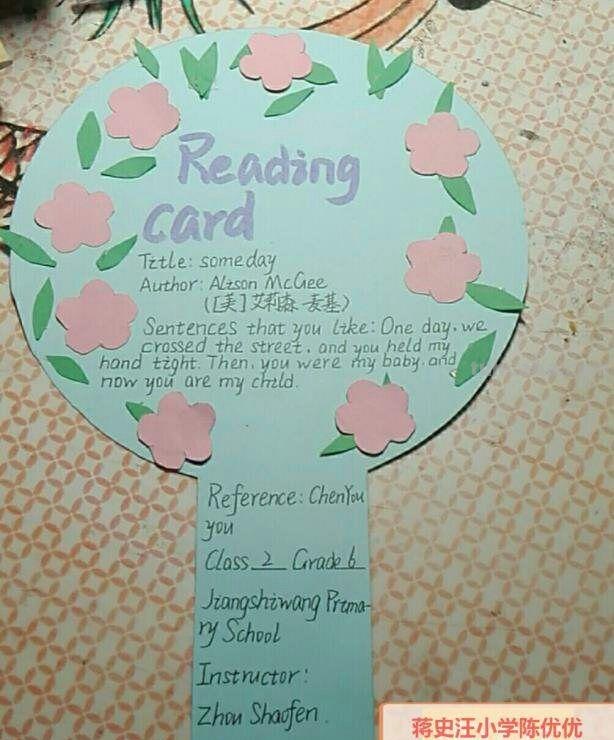 Reading
card
Title: someday
Author: Alison McGee
([美]艾莉森·麦基)
Sentences that you like: One day, we
crossed the street, and you held my
hand tight. Then, you were my baby, and
now you are my child.
Reference: ChenYou
you
Class 2 Grade 6
Jiangshiwang Prima-
ry School
Instructor:
Zhou Shaofen.
蒋史汪小学陈优优